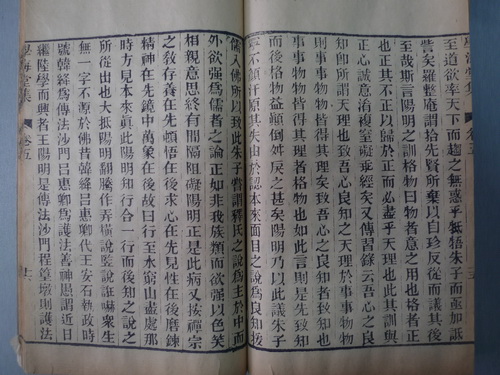 學海堂集 卷五
至道欲率天下而趨之無惑乎牴牾朱子而重加詆
訾矣羅整庵謂拾先賢所棄以自珍反從而議其後
至哉斯言陽明之訓格物曰物者意之用也格者正
也正其不正以歸於正而必盡乎天理也此其訓與
正心誠意複窒礙乖經矣又傳習錄云吾心之良
知卽所謂天理也致吾心良知之天理於事事物物
則事事物物皆得其理矣致吾心之良知者致知也
事事物物皆得其理者格物也如此言則是先致知
而後格物益顛倒舛戾之甚矣陽明乃以此議朱子
寧不顏汗原其失由於認本來面目之說爲良知援
儒入佛所以致此朱子嘗謂釋氏之說爲主於中而
外欲強爲儒者之論正如非我族類而欲強以色笑
相親意思終有間隔阻礙陽明正是此病又按禪宗
之敎存養在先頓悟在後求心在先見性在後磨鍊
精神在先鏡中萬象在後故曰行至水窮山盡處那
時方見本來眞此陽明知行合一行而後知之說之
所從出也大抵陽明翻騰作弄橫說豎說誑嚇衆生
無一字不源於佛昔韓絳呂惠卿代王安石執政時
號韓絳爲傳法沙門呂惠卿爲護法善神愚謂近日
繼陸學而興者王陽明是傳法沙門程篁墩則護法
學海堂集 卷五